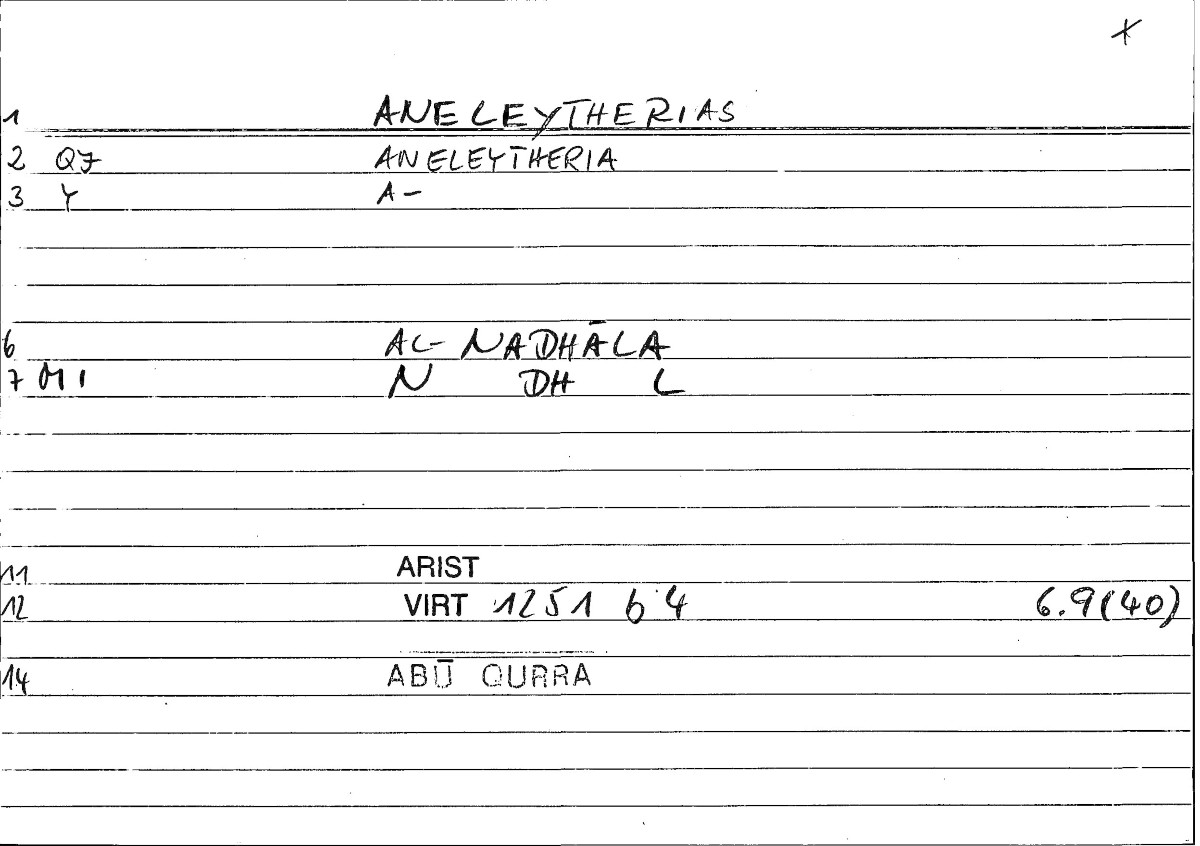 X
1 ANELEYTHERIAS
2 QF ANELEYTHERIA
3 Y A-
6 AL-NADHĀLA
7 M1 N DH L
11 ARIST
12 VIRT 1251 b 4 6.9(40)
14 ABŪ QURRA